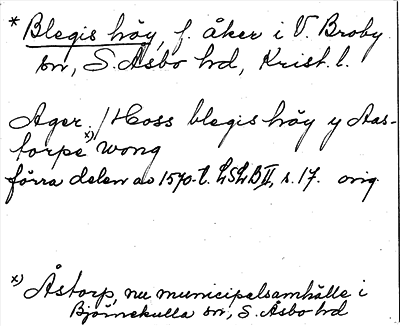 * Blegis höy, f. åker i V. Broby
sn, S. Åsbo hd, Krist. l.
Ager / Hoss blegis höy y Aas-
torpe x) wong
förra delen av 1570-t. LSLB II, s. 17. orig
x) Åstorp, nu municipalsamhälle i
Björnekulla sn, S. Åsbo hd